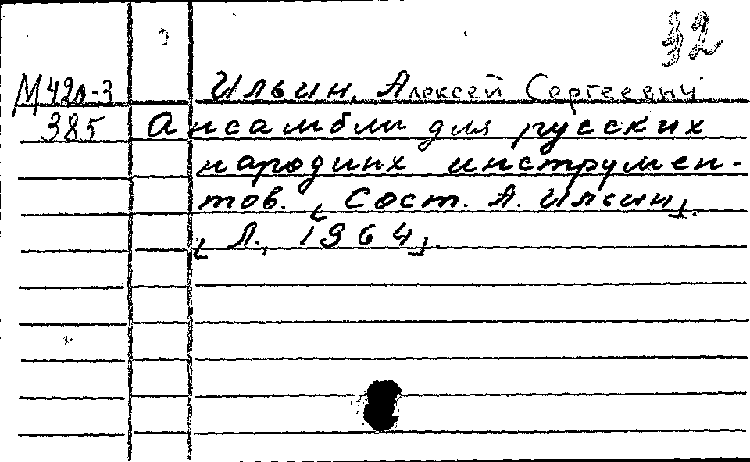 32
М420-3 Ильин, Алексей Сергеевич
385 Ансамбли для русских
народных инструмен-
тов. [Сост. А. Ильин].
[Л., 1964].